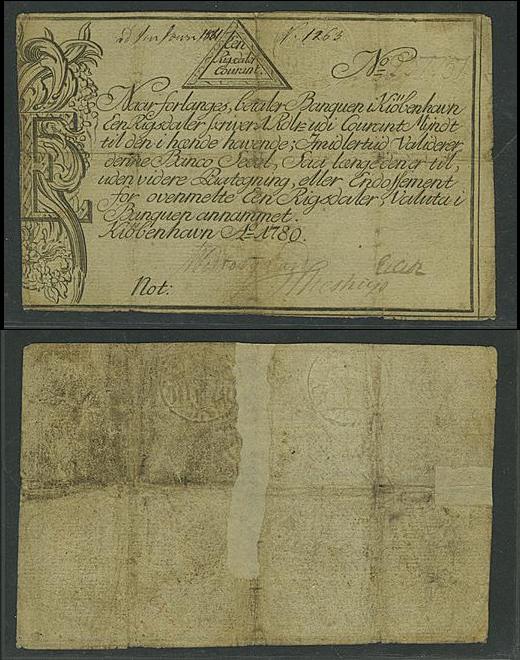 N. 1263
Een
Rigsdaler
Courant.
No
Naar forlanges, betaler Banquen i Kiøbenhavn
Een Rigsdaler skriver 1 Rdlr udi Courant Mÿndt
til den i hænde havende; Imidlertid Validerer
denne Banco Sedel, Saa længe den er til,
uden videre Paategning, eller Endossement
for ovenmelte Een Rigsdaler, Valuta i
Banquen annammet.
Kiøbenhavn Ao 1780.
Not: